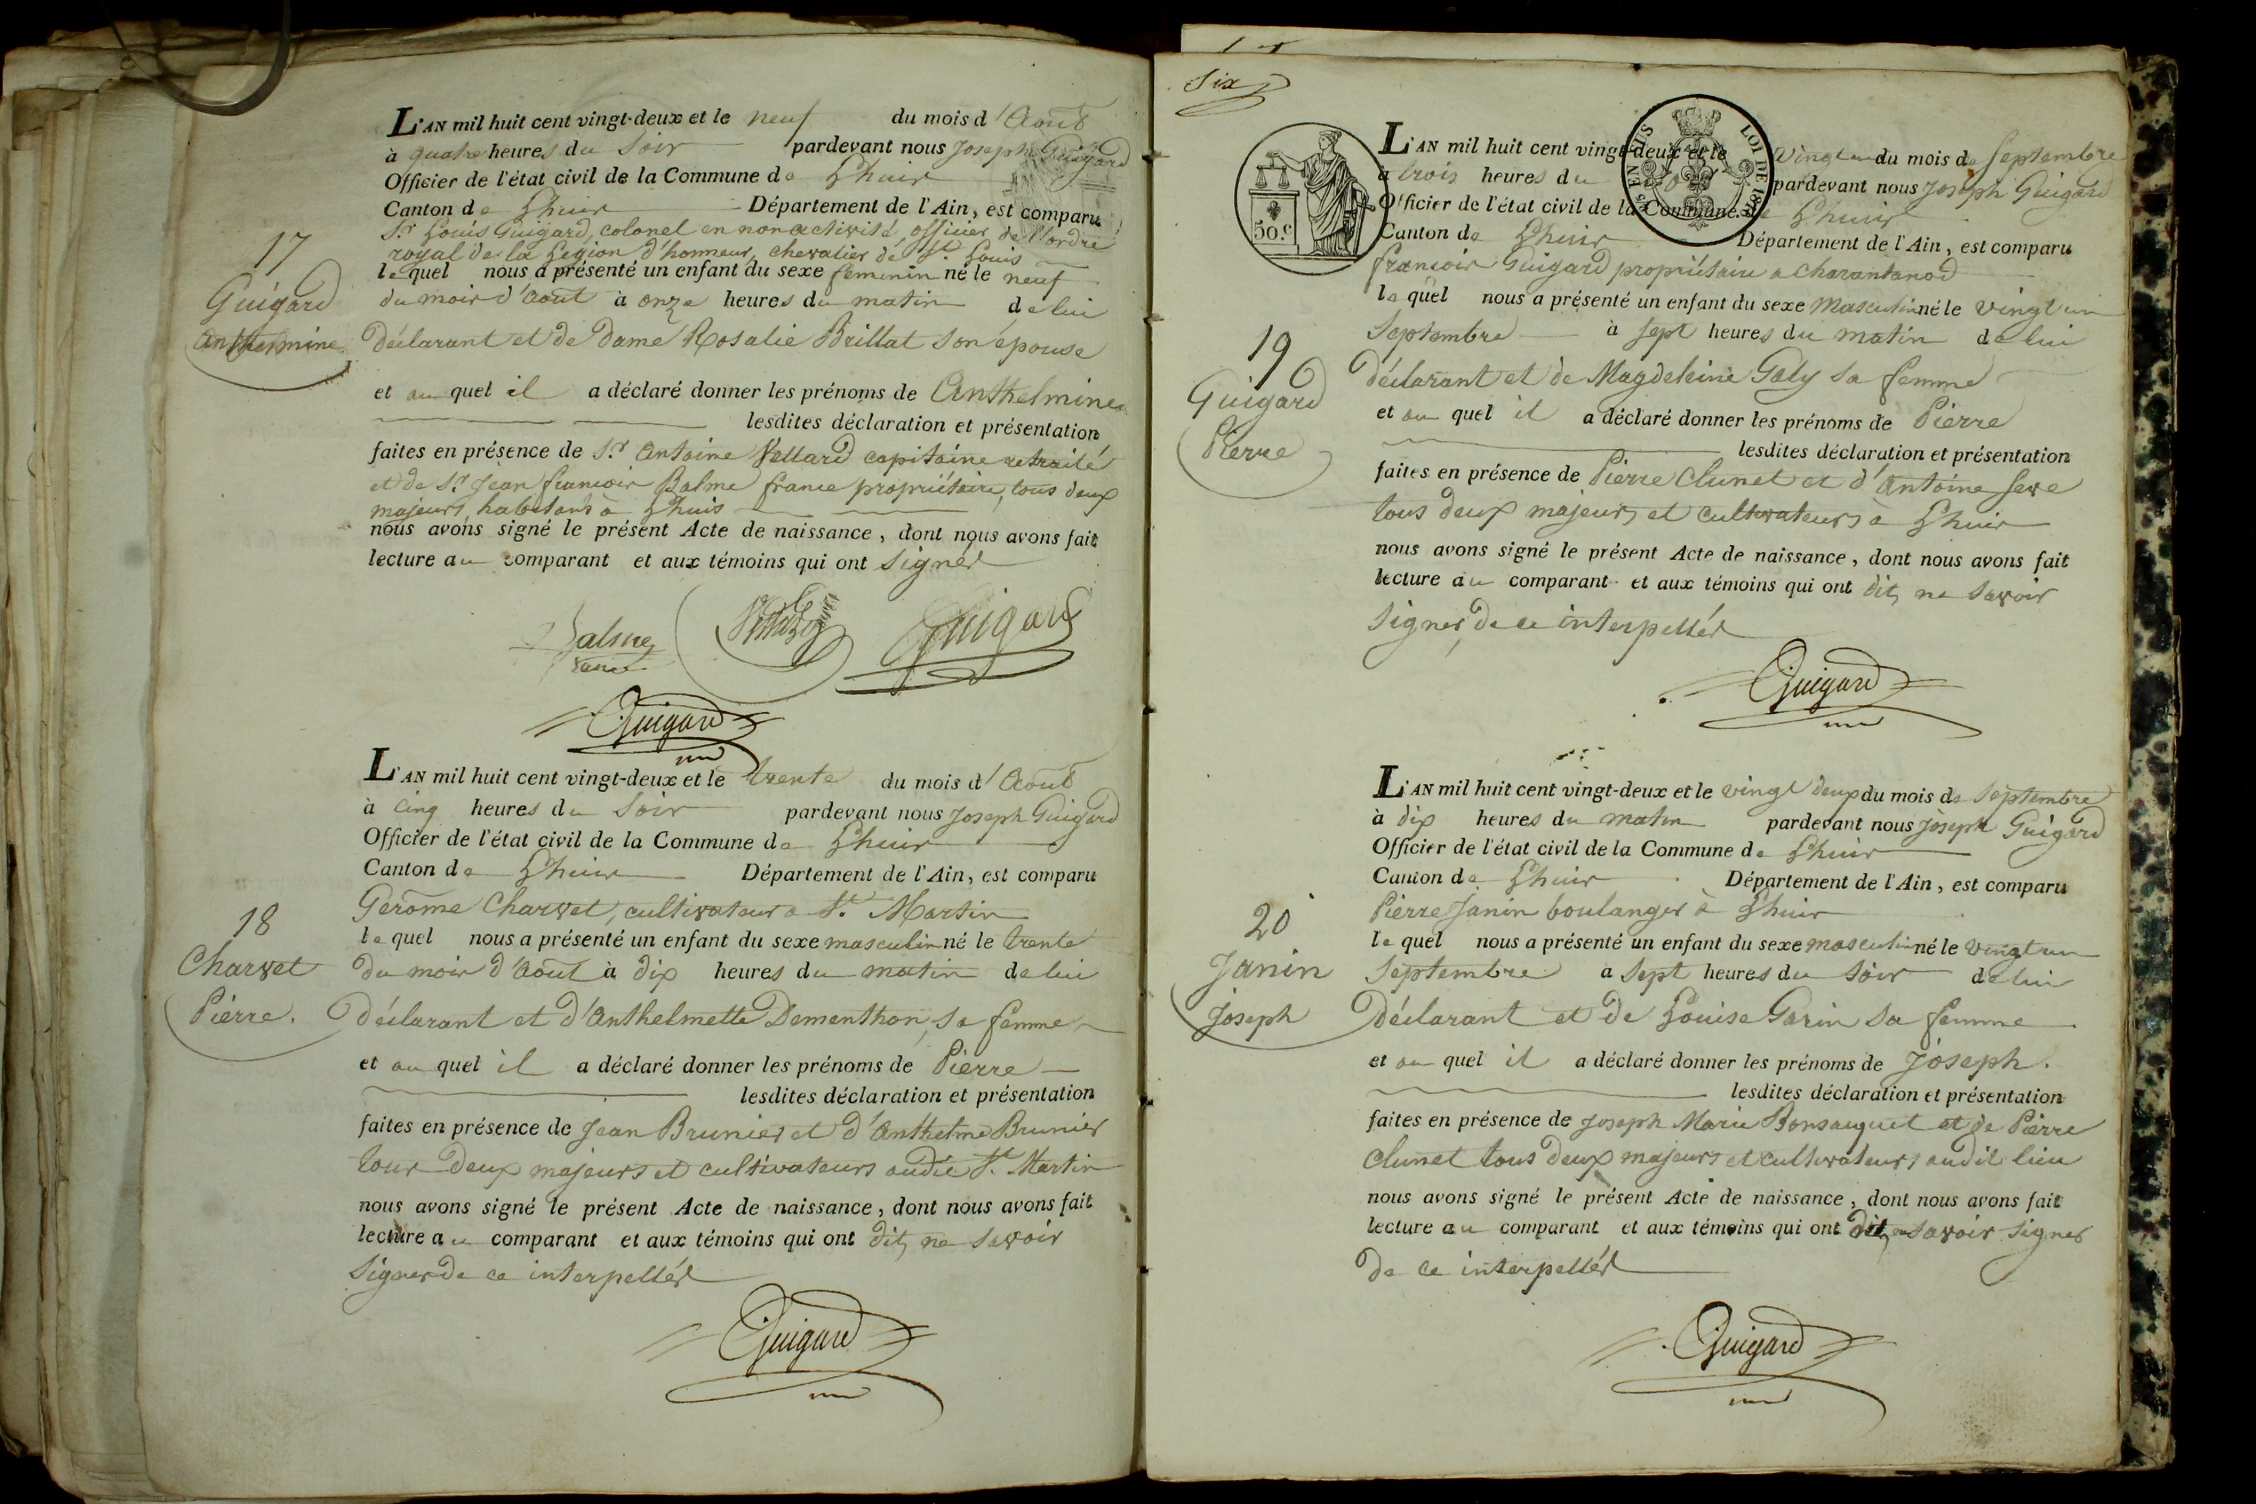 L'AN mil huit cent vingt-deux et le neuf du mois d'Août
à quatre heures du Soir pardevant nous Joseph Guigard
Officier de l'état civil de la Commune de Lhuis
Canton de Lhuis Département de l'Ain, est comparu
Sr. Louis Guigard, colonel en non activité, officier de l'ordre
royal de la Légion d'honneur, chevalier de St. Louis
lequel nous a présenté un enfant du sexe féminin né le neuf
du mois d'août à onze heures du matin de lui
17
Guigard
Anthelmine
déclarant et de Dame Rosalie Brillat son épouse
et auquel il a déclaré donner les prénoms de Anthelmine
lesdites déclaration et présentation
faites en présence de Sr. Antoine Vellard capitaine retraité
et de Sr. Jean françois Balme france propriétaire, tous deux
majeurs, habitants à Lhuis
nous avons signé le présent Acte de naissance, dont nous avons fait
lecture au comparant et aux témoins qui ont signés
Balme Guigard
Guigard
L'AN mil huit cent vingt-deux et le trente du mois d'Août
à cinq heures du Soir pardevant nous Joseph Guigard
Officier de l'état civil de la Commune de Lhuis
Canton de Lhuis Département de l'Ain, est comparu
Gerôme Charvet, cultivateur a St. Martin
lequel nous a présenté un enfant du sexe masculin né le trente
du mois d'Août à dix heures du matin de lui
18
Charvet
Pierre.
déclarant et d'Anthelmette Dementhon, sa femme
et auquel il a déclaré donner les prénoms de Pierre
lesdites déclaration et présentation
faites en présence de Jean Brunier et d'Anthelme Brunier
tous deux majeurs et cultivateurs audit St. Martin
nous avons signé le présent Acte de naissance, dont nous avons fait
lecture au comparant et aux témoins qui ont dit, ne savoir
signer de ce interpellés
Guigard
Six
50.c
EN SUS LOI DE 181
L'AN mil huit cent vingt-deux et le vingt un du mois de Septembre
à trois heures du pardevant nous Joseph Guigard
Officier de l'état civil de la Commune de Lhuis
Canton de Lhuis Département de l'Ain, est comparu
françois Guigard propriétaire a Charantonod
lequel nous a présenté un enfant du sexe Masculin né le vingt un
Septembre à sept heures du matin de lui
19
Guigard
Pierre
déclarant et de Magdeleine Galy sa femme
et auquel il a déclaré donner les prénoms de Pierre
lesdites déclaration et présentation
faites en présence de Pierre Clunet et d'Antoine Seve
tous deux majeurs et cultivateurs à Lhuis
nous avons signé le présent Acte de naissance, dont nous avons fait
lecture au comparant et aux témoins qui ont dit, ne savoir
signer, de ce interpellés
Guigard
L'AN mil huit cent vingt-deux et le vingt deux du mois de Septembre
à dix heures du matin pardevant nous Joseph Guigard
Officier de l'état civil de la Commune de Lhuis
Canton de Lhuis Département de l'Ain, est comparu
Pierre Janin boulanger à Lhuis
lequel nous a présenté un enfant du sexe masculin né le vingt un
Septembre a sept heures du soir de lui
20
Janin
Joseph
déclarant et de Louise Garin sa femme
et auquel il a déclaré donner les prénoms de Joseph.
lesdites déclaration et présentation
faites en présence de Joseph Marie Bonsacquet et de Pierre
Clunet tous deux majeurs et cultivateurs audit lieu
nous avons signé le présent Acte de naissance, dont nous avons fait
lecture au comparant et aux témoins qui ont dit, ne savoir signer
de ce interpellés
Guigard